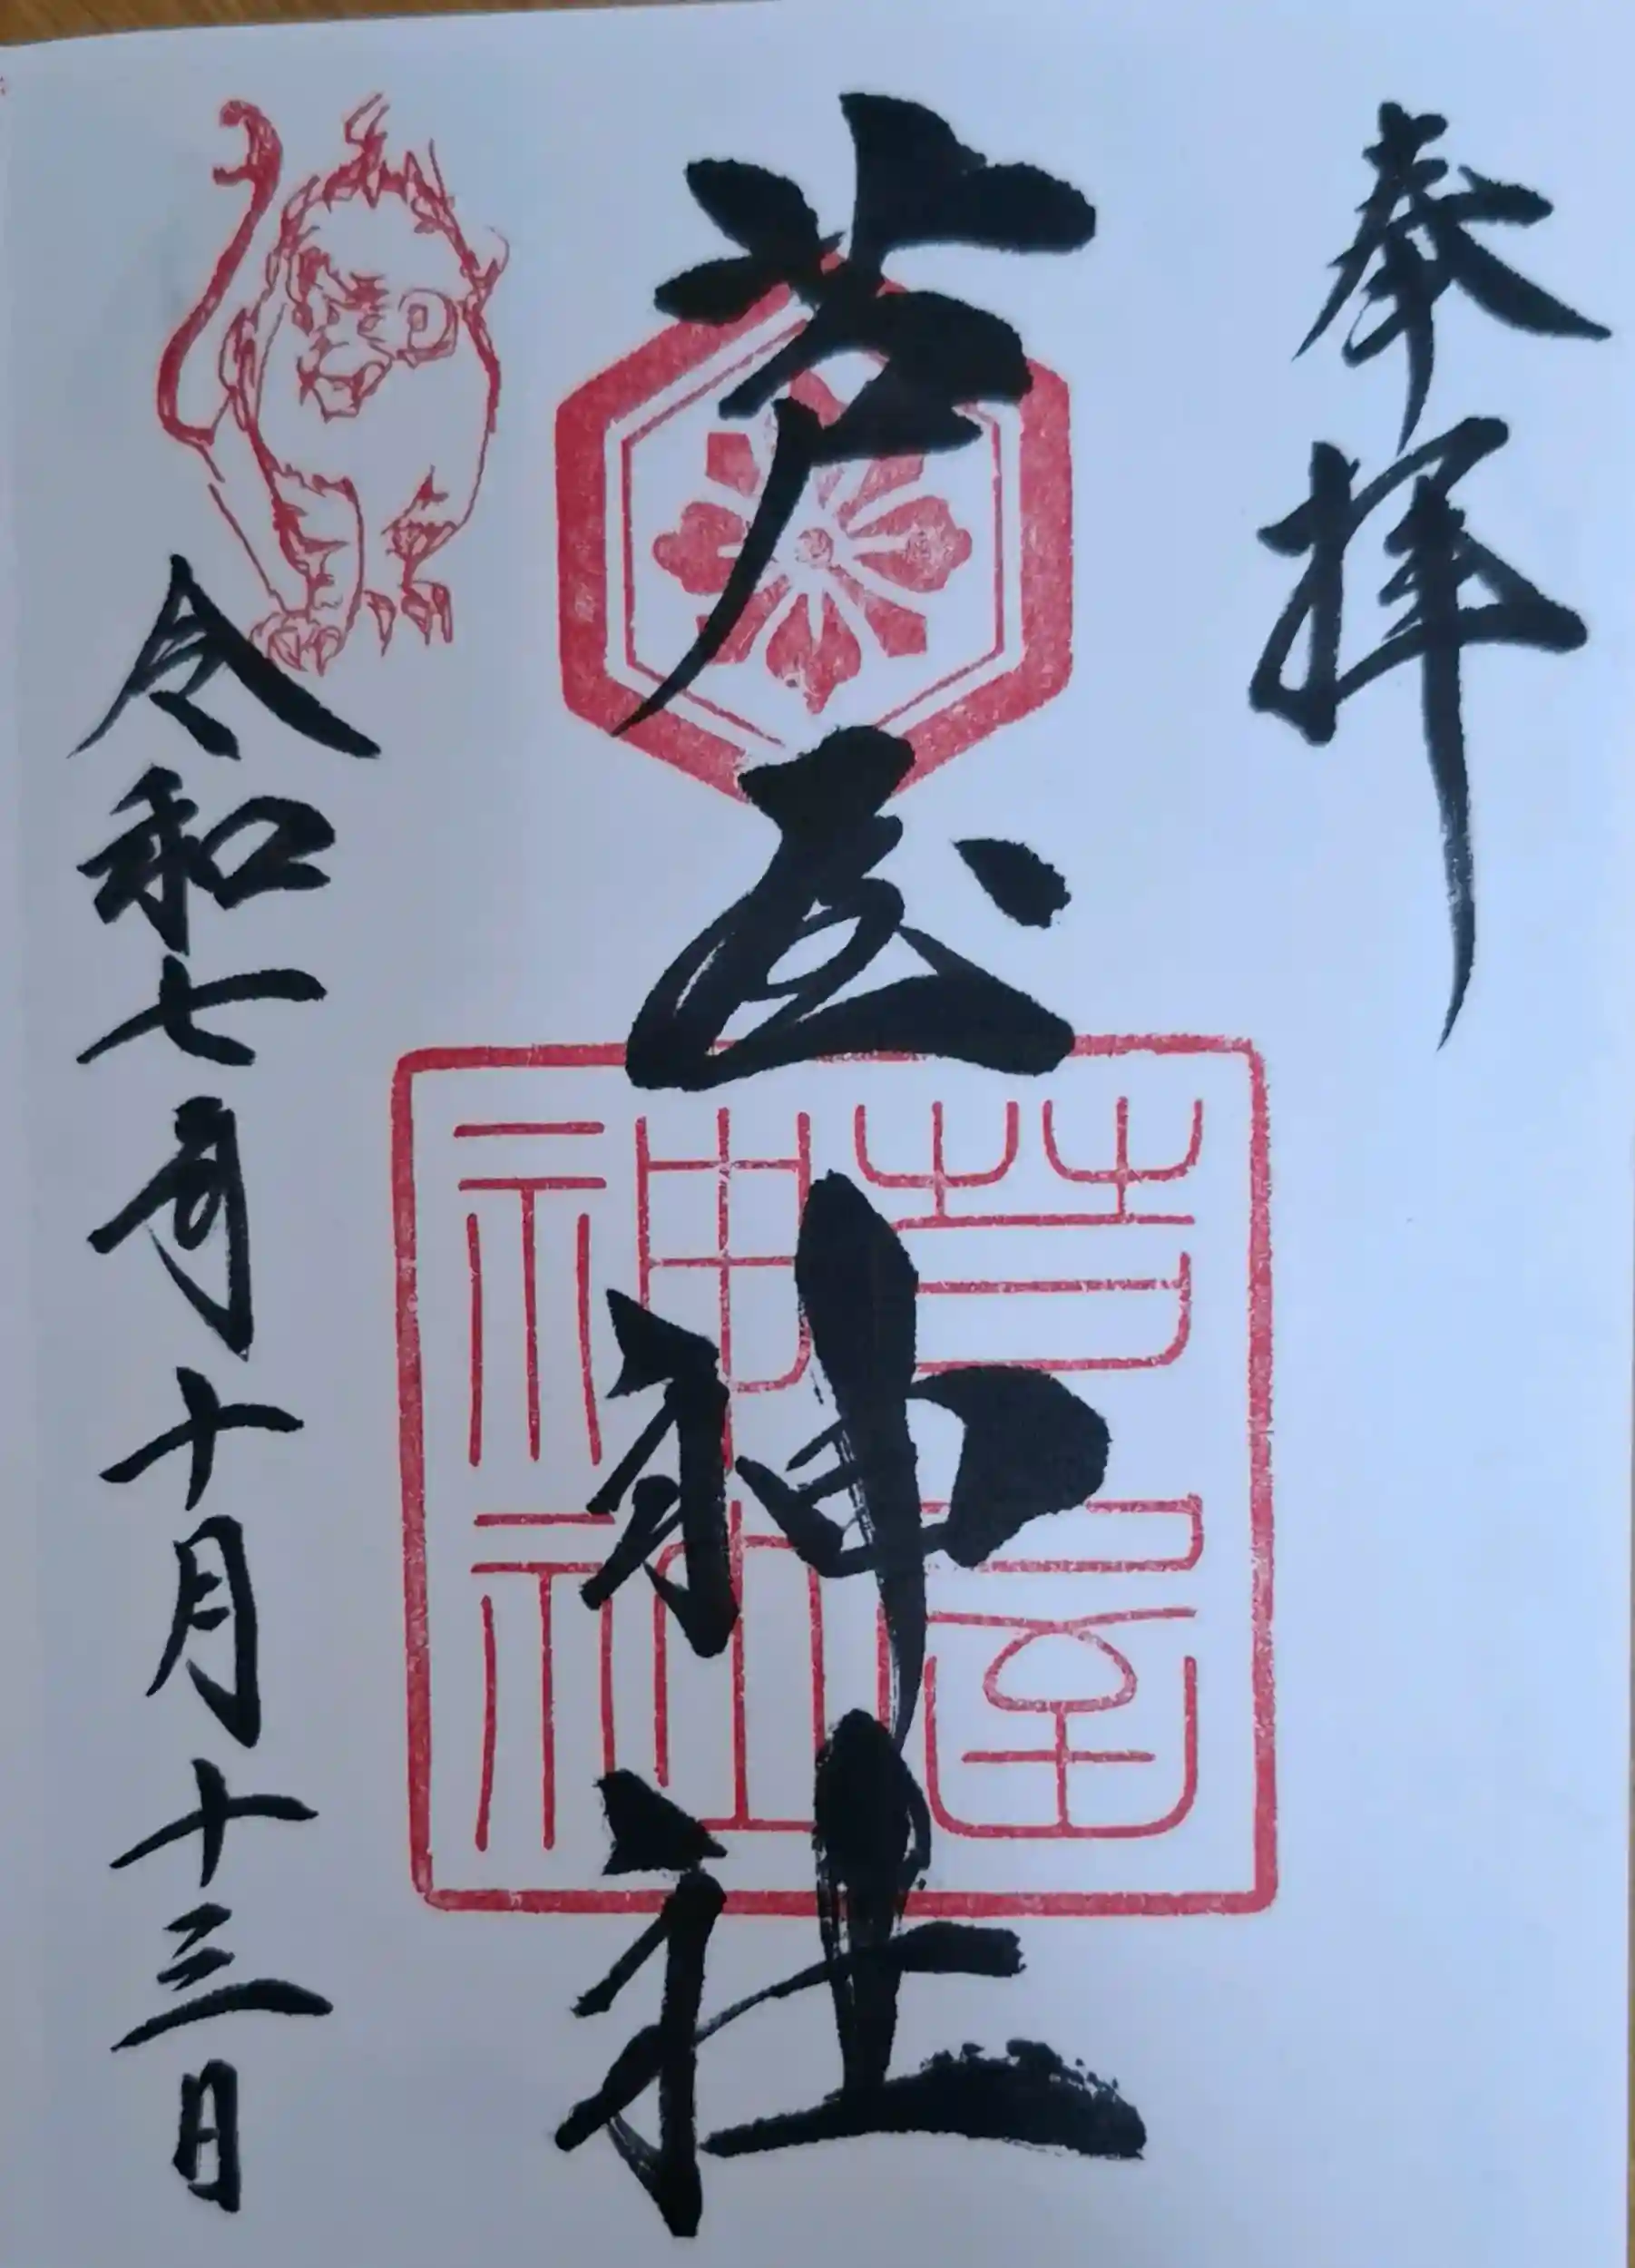 奉拝
芦屋神社
令和七年十月十三日
芦屋
神社